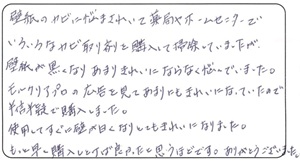 壁紙のカビに悩まされいて薬局やホームセンターで
いろいろなカビ取り剤を購入して掃除していましたが
壁紙が黒くなりあまりきれいにならなく悩んでいました。
モルクリアプロの広告を見てあまりにもきれいになっていたので
半信半疑で購入しました。
使用してすぐに壁が白くなりとてもきれいになりました。
もっと早く購入しとけば良かったと思うほどです。ありがとうございました。